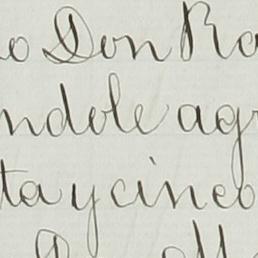 o Don Ra
ndole agr
ta y cinco